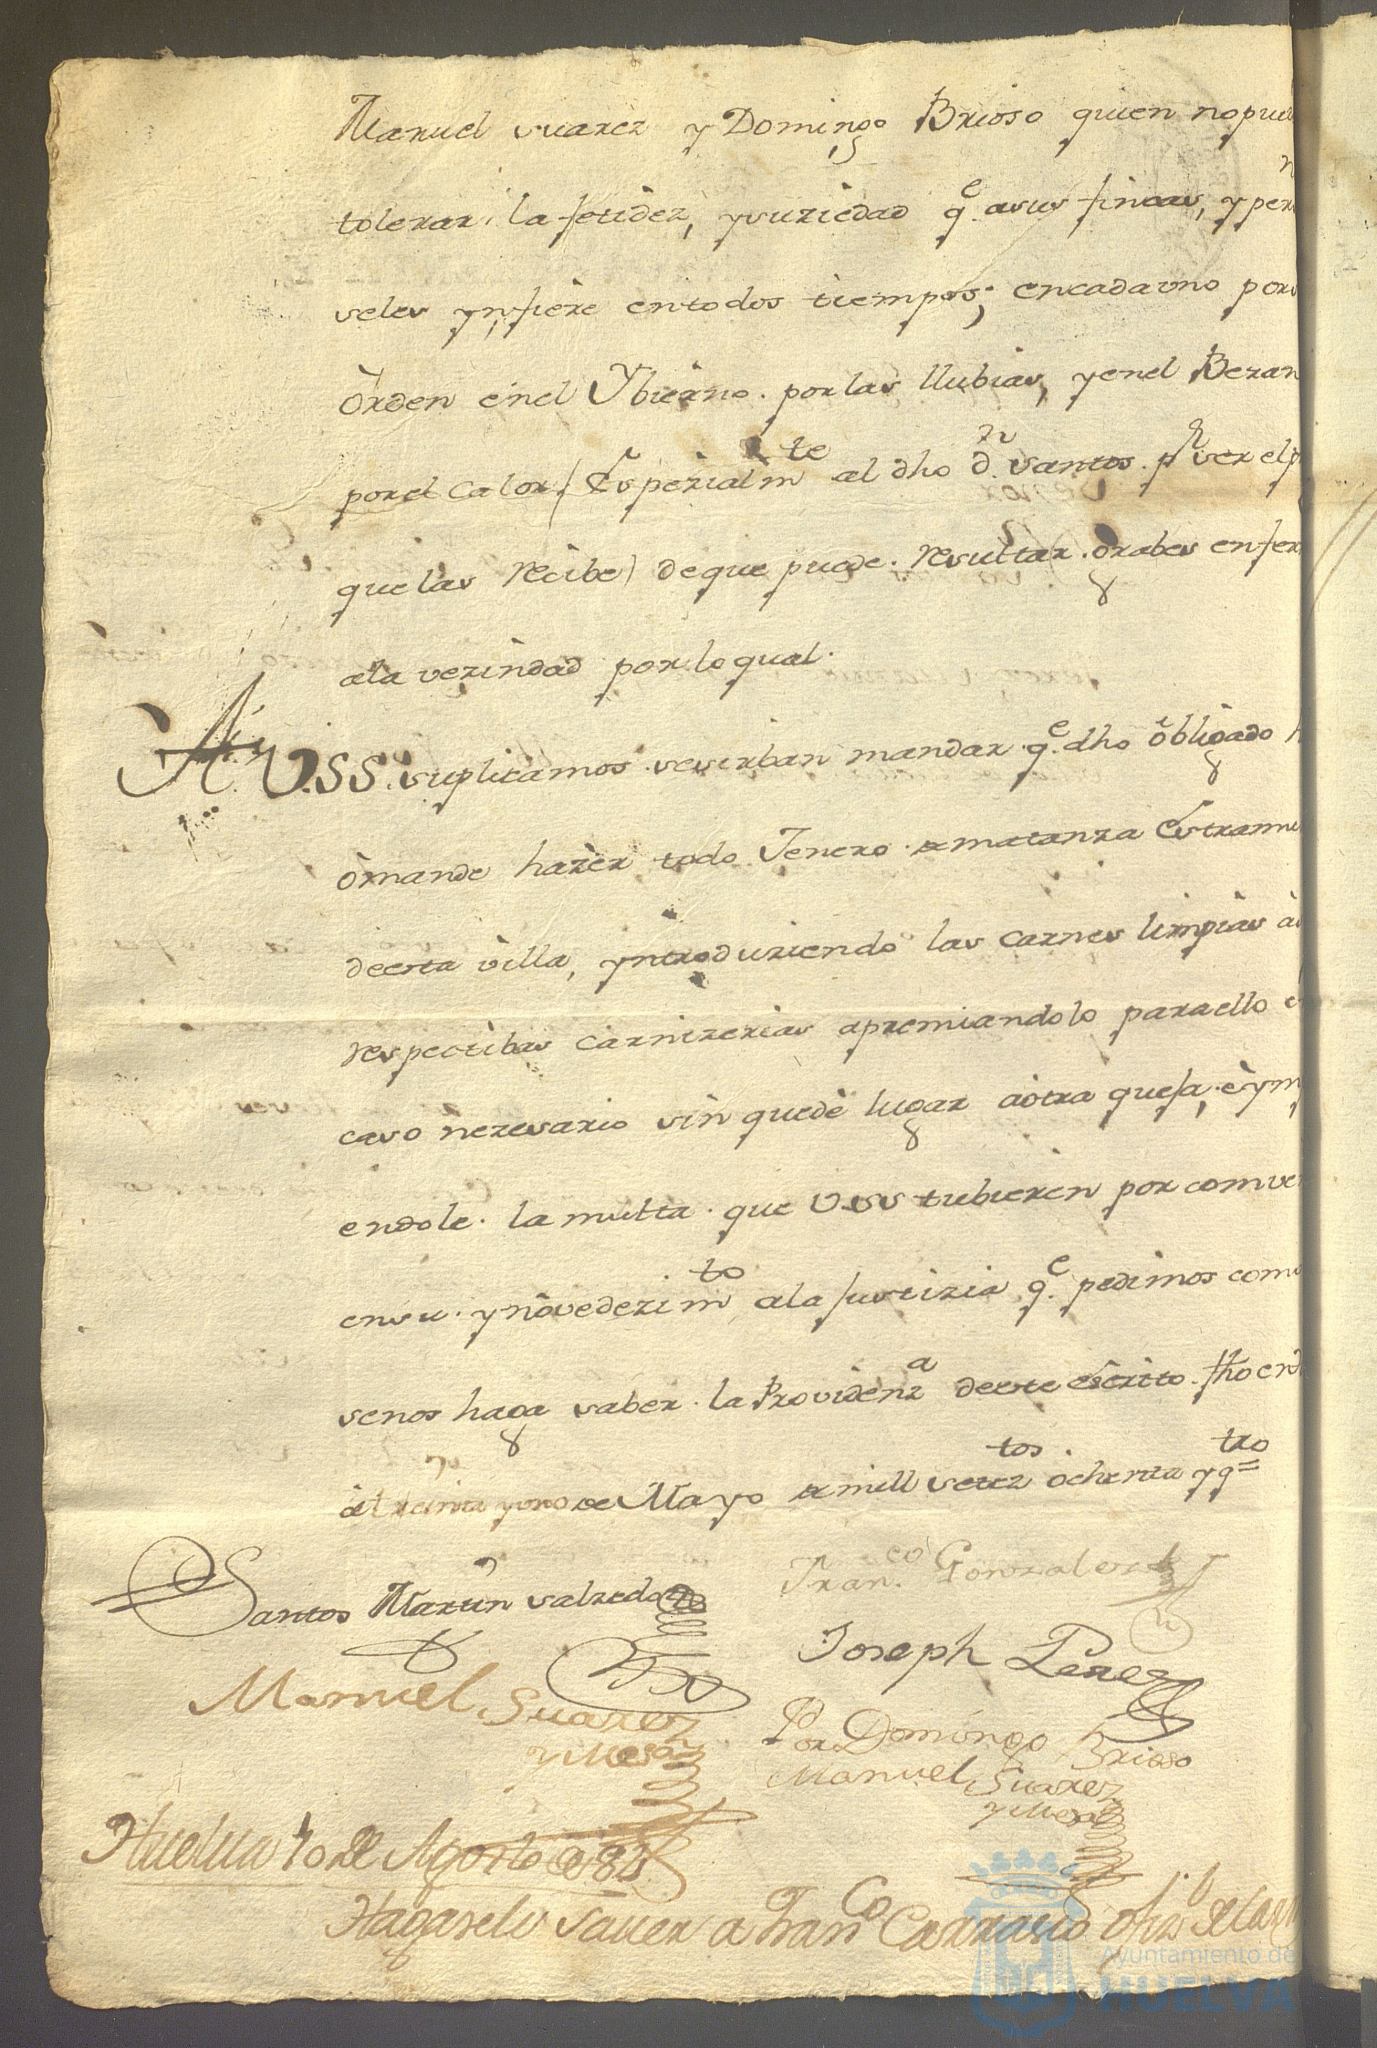 Manuel suarez y Domingo Brioso quien nopue
tolerar la fetidez, ysuziedad q.e asus fincas, yper
seles ynfiere entodos tiempos; encadauno por
orden enel Ybierno. por las llubias, yenel Beran
porel Calor (Espezialm.te al dho d.n santos. p.r ser el
que las rezibe) deque puede. resultar. grabes enfer
ala vezindad por lo qual.
A V.SS. suplicamos. sesirban mandar q.e dho obligado h
omande hazer todo Jenero de matanza Estramu
deesta villa, yntroduziendo las carnes limpias a
respectibas carnizerias apremiandolo paraello e
caso nezesario sin quede lugar aotra quefa, eym
endole. la multa. que V.SS tubieren por comve
ensu. ynovedezim.to ala Justizia q.e pedimos como
senos haga saber. la Providenz.a deeste escrito. fho en
atreinta yuno de Mayo de mill setez.tos ochenta yq.tro
Santos Martin salzedo
Fran.co Gonzales
Joseph Perez
Manuel Suarez
y Mesa
Por Domingo Brioso
Manuel Suarez
y Mesa
Huelua 10 de Agosto de 84
Hagasele sauer a Fran.co Carrasco
Ayuntamiento de
HUELVA